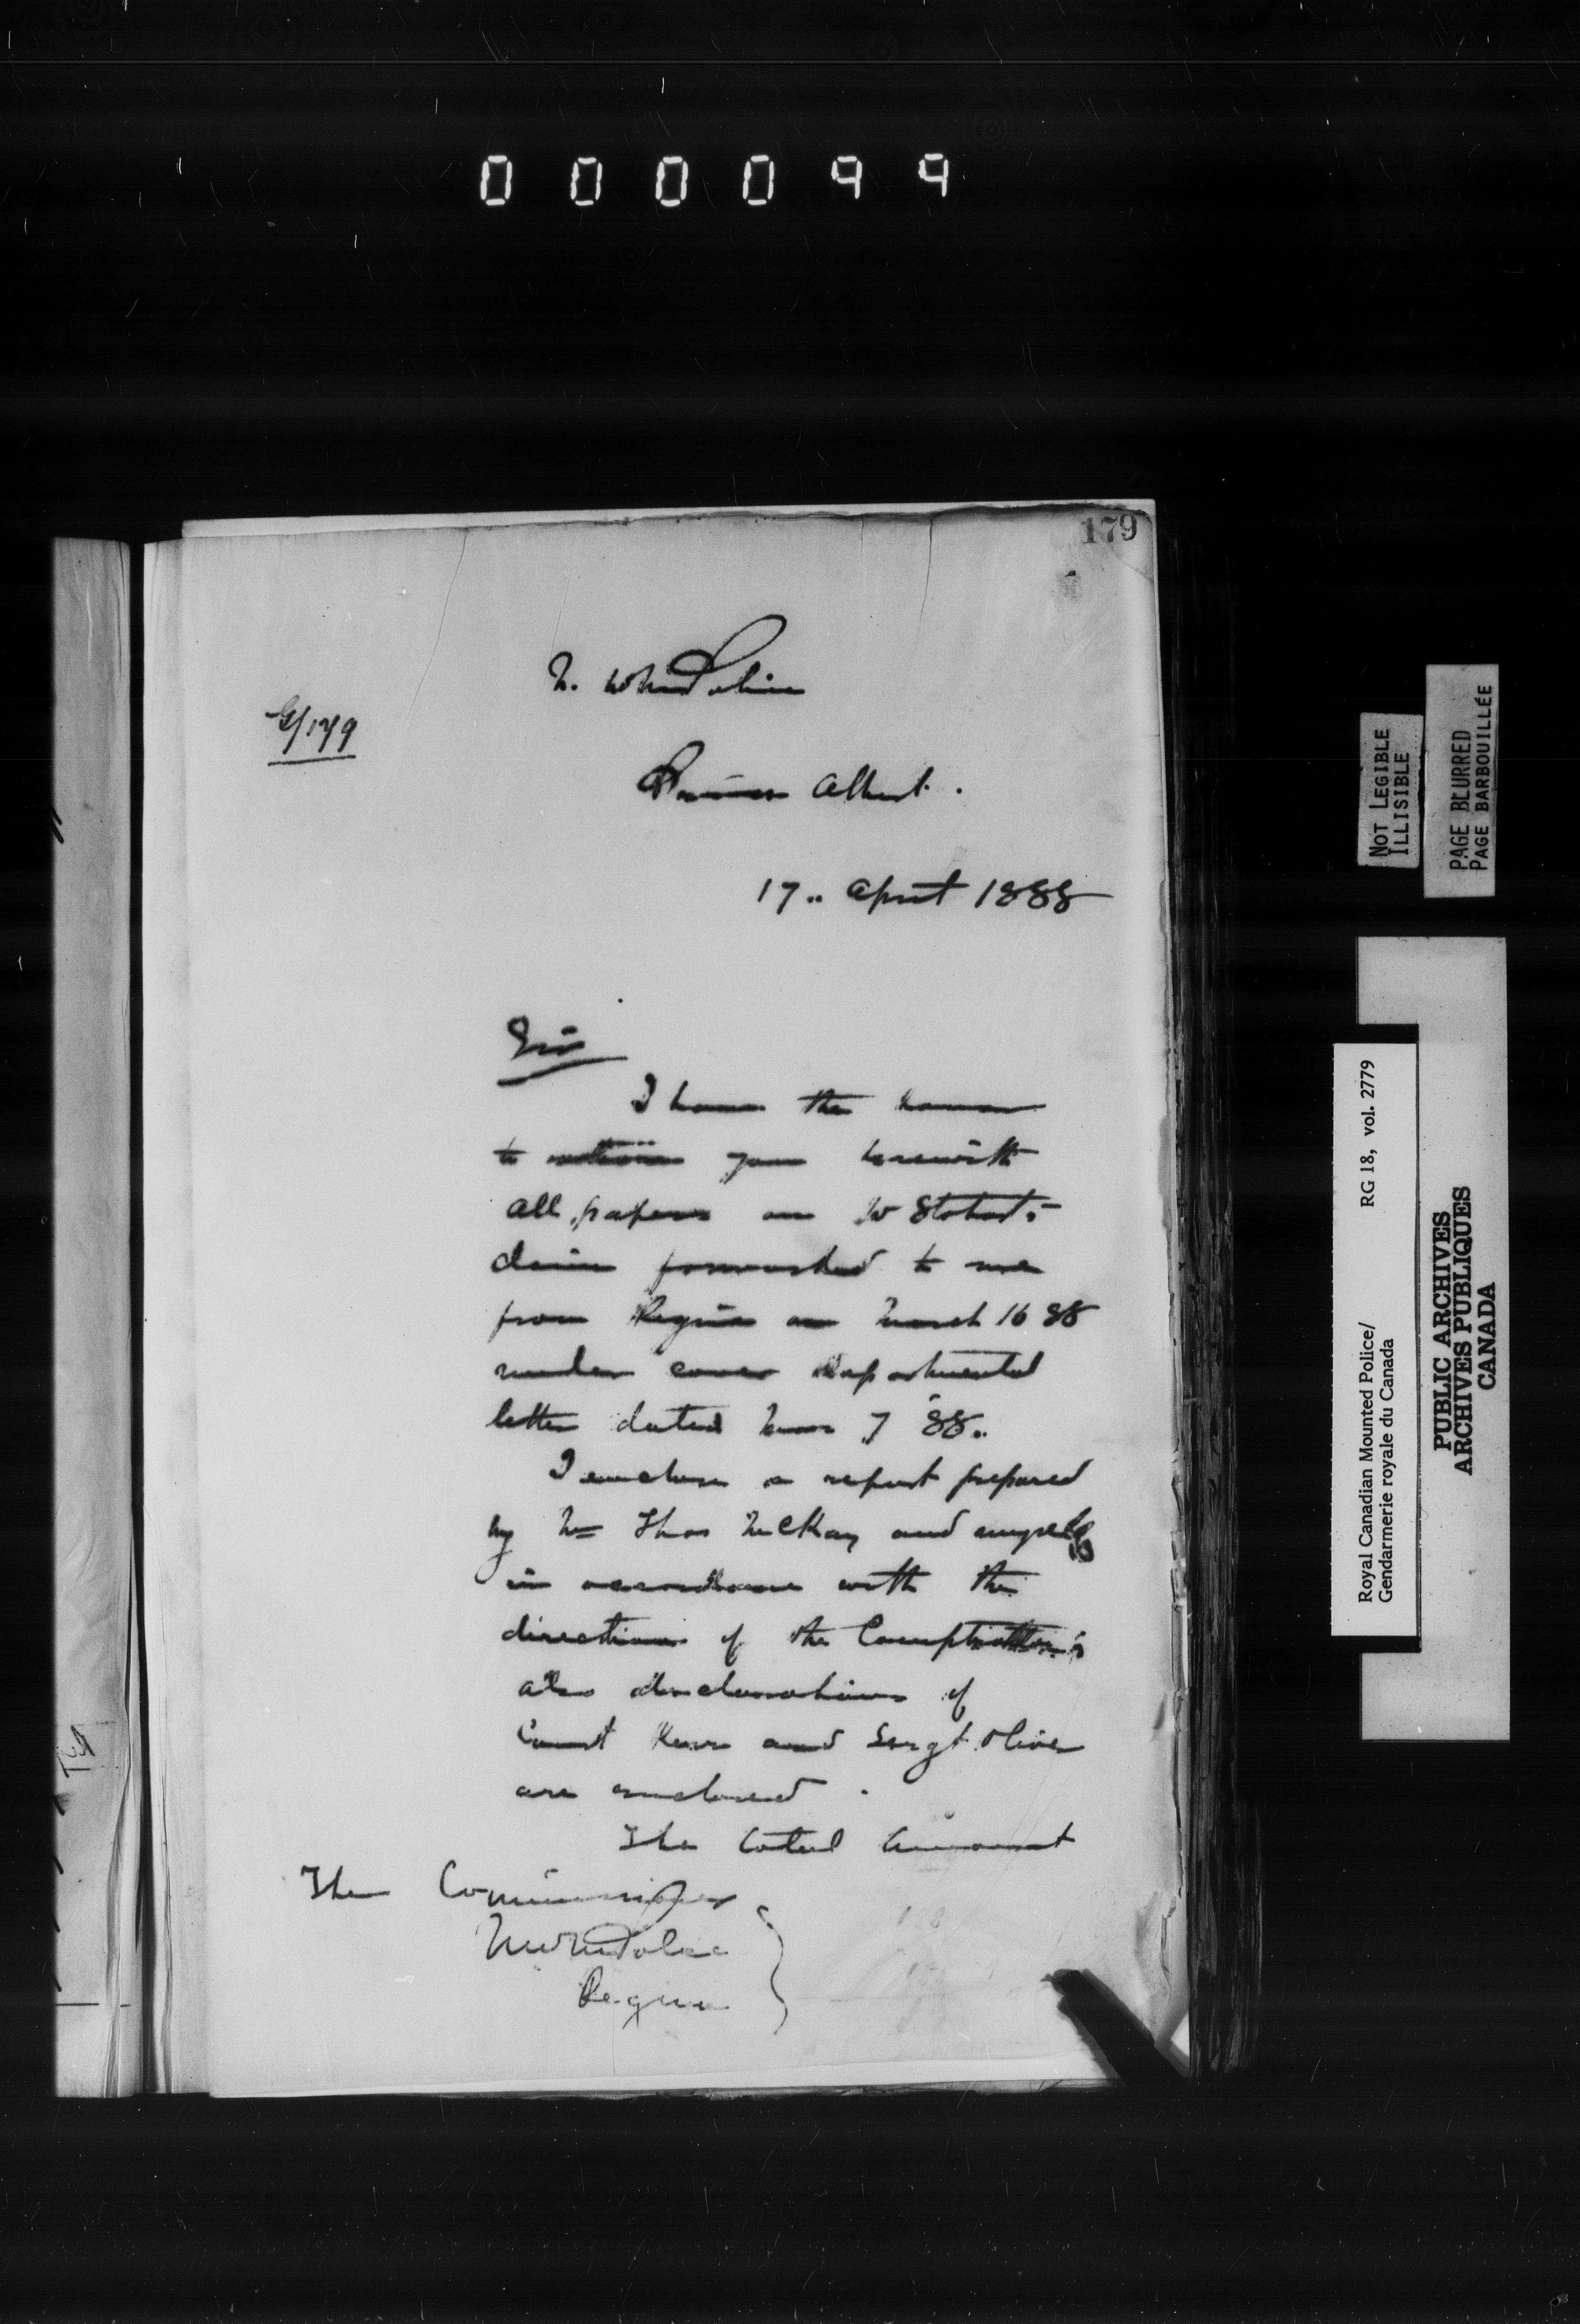 000099
179
N. W. M. Police
G/179
Prince Albert.
17.. April 1888
Sir
I have the honor
to return you herewith
all papers on W Stobart's
claim forwarded to me
from Regina on March 16 88
under cover departmental
letter dated 7 88..
I enclose a report prepared
by Mr Thos McKay and myself
in accordance with the
directions of the Comptroller;
also declarations of
Const Kerr and Sergt. Oliver
are enclosed.
The total amount
The Commissioner
N W M Police
Regina
NOT LEGIBLE
ILLISIBLE
PAGE BLURRED
PAGE BARBOUILLÉE
Royal Canadian Mounted Police/ RG 18, vol. 2779
Gendarmerie royale du Canada
PUBLIC ARCHIVES
ARCHIVES PUBLIQUES
CANADA